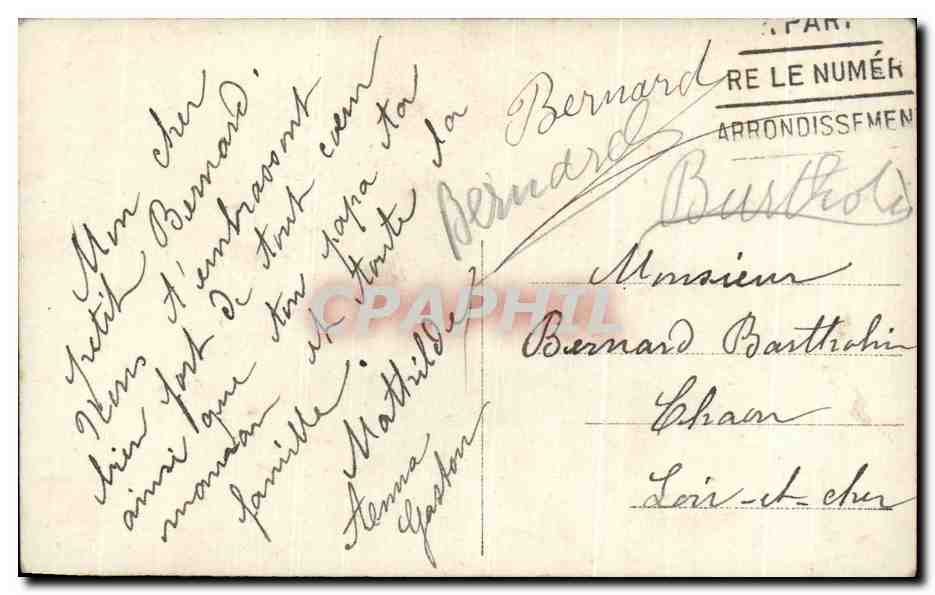 Mon cher
petit Bernard.
Nous t'embrassont
bien fort de tout cœur
ainsi que ton papa ta
maman et toute la
famille.
Mathilde
Gaston
Bernard
Bernard
Barthol
. PAR.
RE LE NUMÉR
ARRONDISSEMEN
Monsieur
Bernard Bartholin
Chaon
Loir-et-cher
CPAPHIL